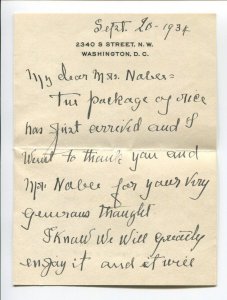 Sept. 20 - 1934
2340 S STREET, N. W.
WASHINGTON, D. C.
My dear Mrs. Nabers =
The package of rice
has just arrived and I
want to thank you and
Mr. Naber for your very
generous thought
I know we will greatly
enjoy it and it will